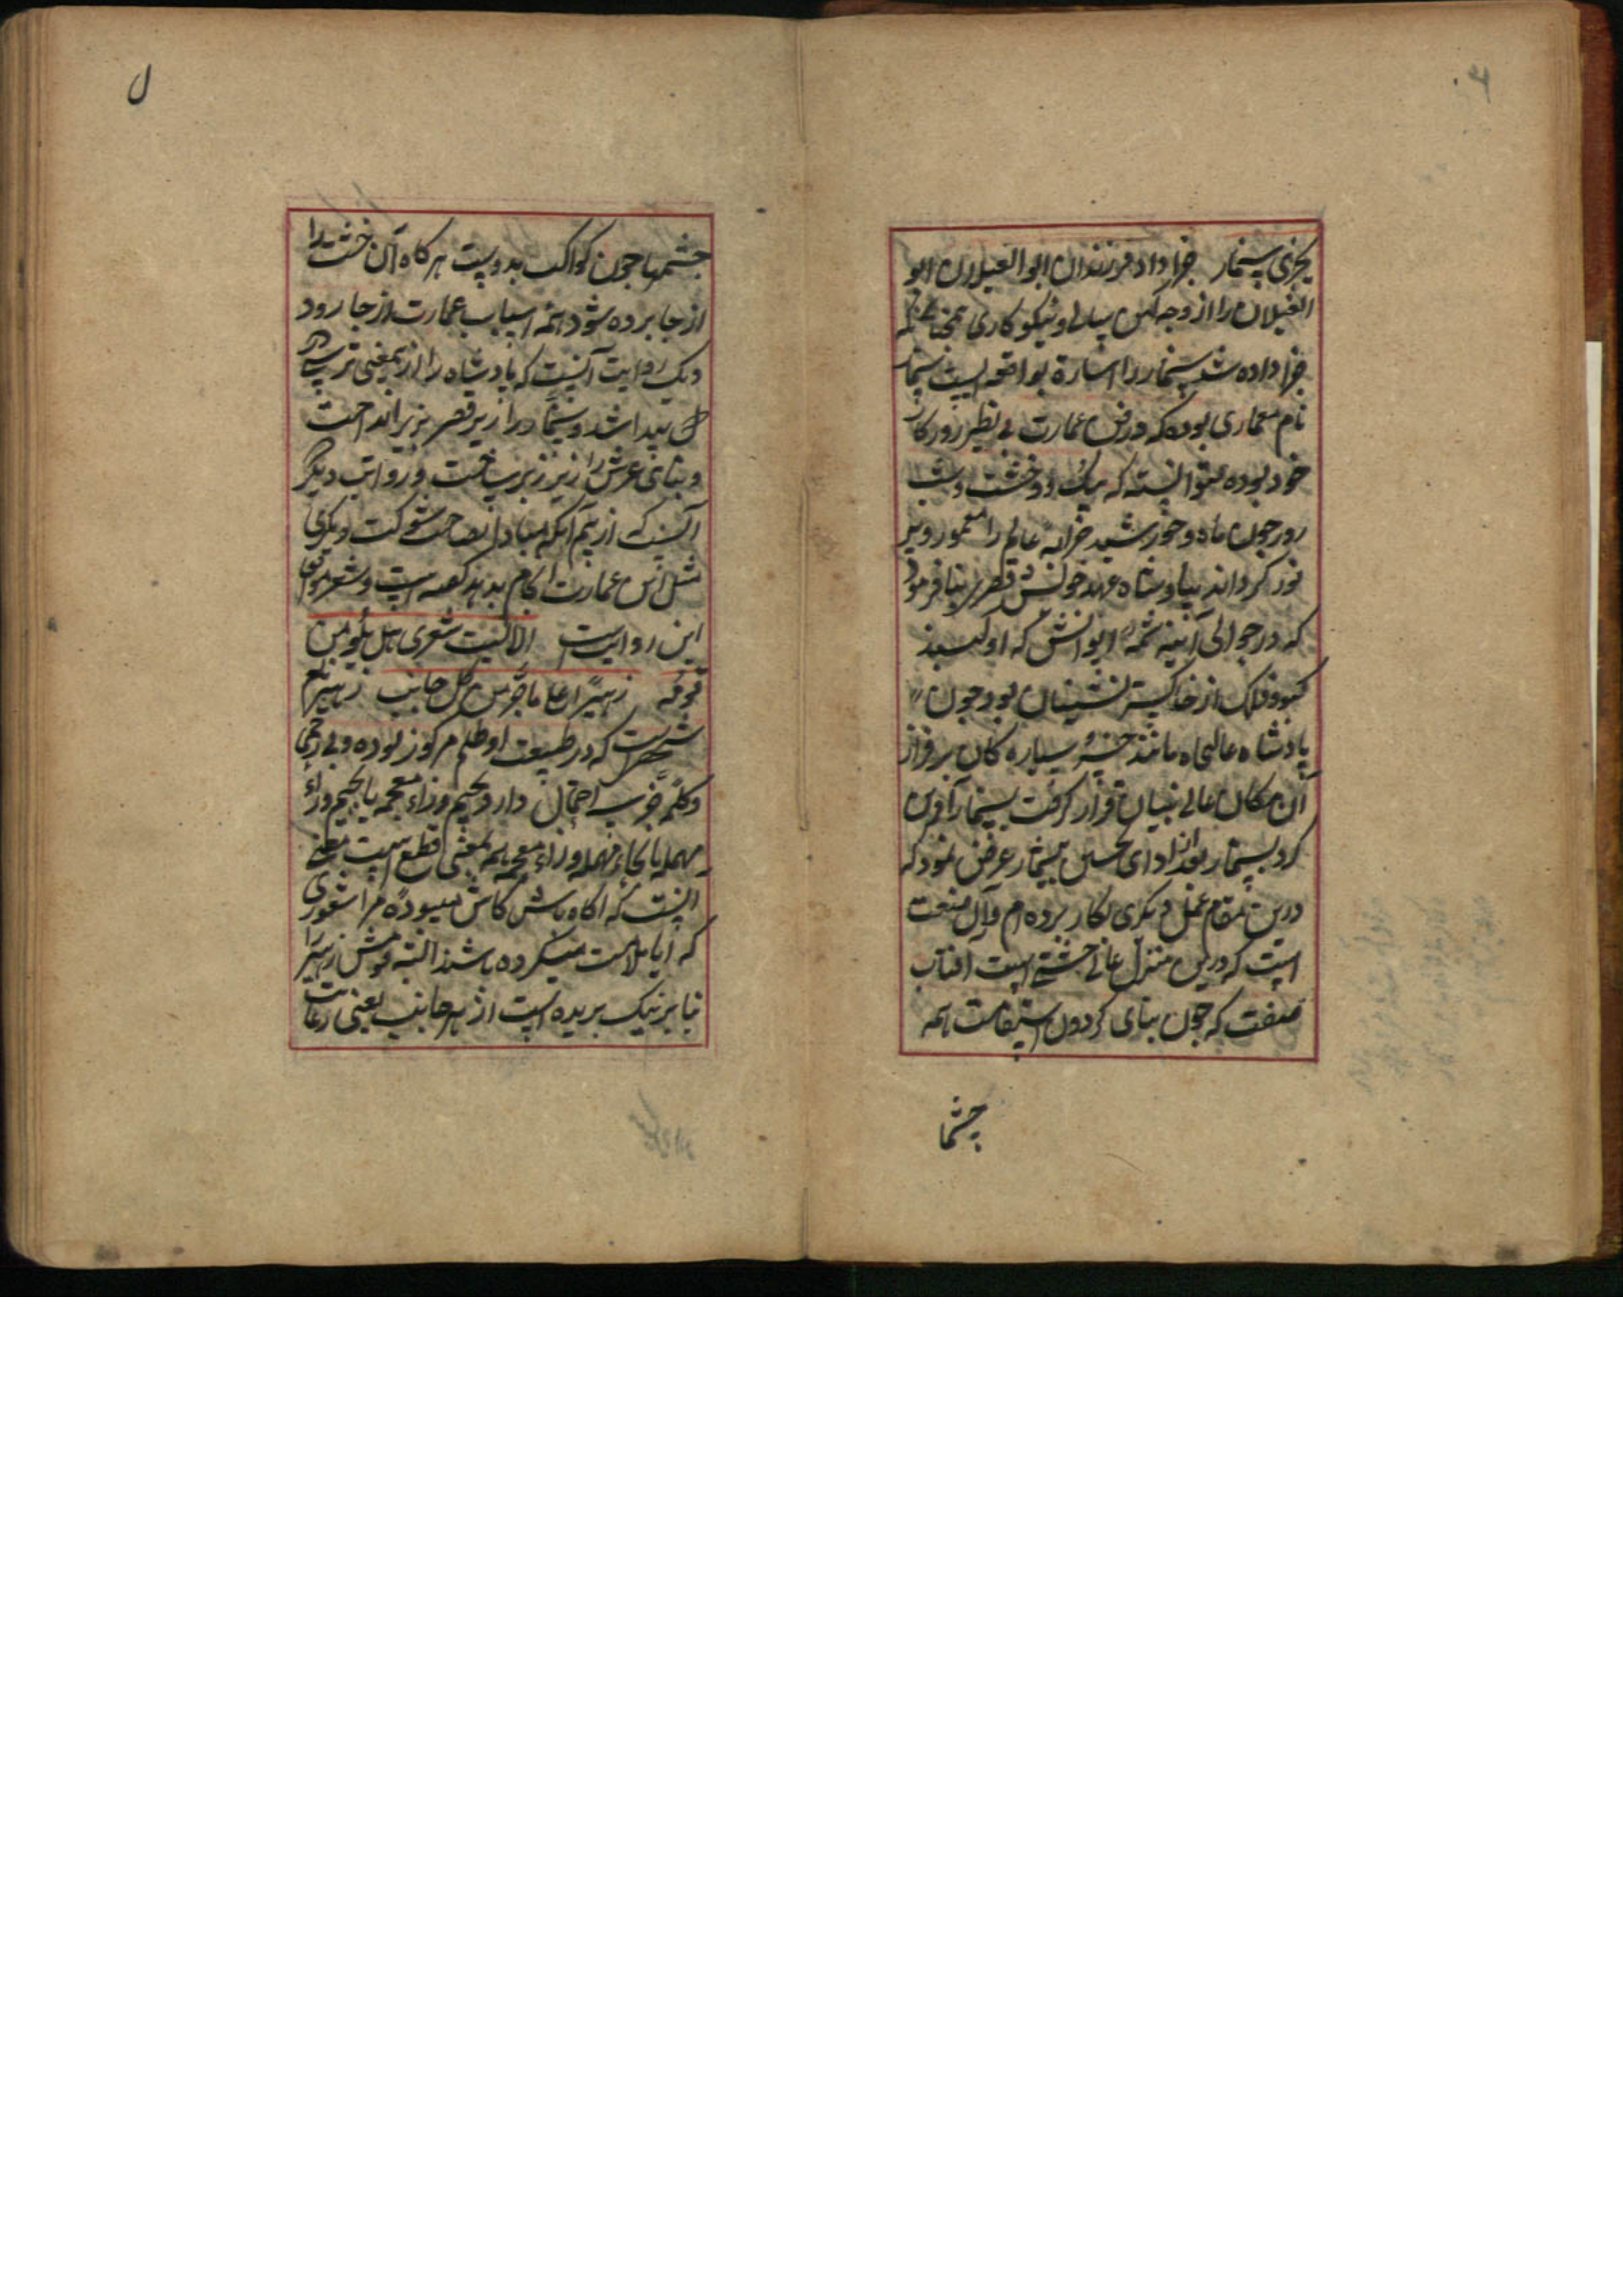 یجزی سنمار جزا داد فرزندان ابو الغیلان ابو
الغیلان را از وجه کبر سالی و نیکو کاری همچنانکه
جزا داده شد سنمار را اشارة بواقعه ایست سنمار
نام معماری بوده که در فن عمارت بی نظیر روزکار
خود بوده میتوانسته که بیک دو خشت و شب
روز چون ماه و خورشید خرابه عالم را معمور و پر
نور کرداند پادشاه عهد خولش قصری بنا فرمود
که در حوالی آیینه ایوانش که او کنبد
کبود فلک از خاکستر نشینان بود چون
پادشاه عالیجاه مانند خسرو سیاره کان بر فراز
آن مکان عالی بنیان قرار کرفت بسنمار آفرین
کرد سنمار بعد از ادای تحسین بیشمار عرض نمود که
درین مقام عمل دیکری بکار برده ام و آن صنعت
است که درین منزل عالی خشتی است آفتاب
صفت که چون بنای کردون استقامت همه
چشما
ل
چشمها چون کواکب بدوست هر کاه آن خشت را
از جا برده شود همه اسباب عمارت از جا رود
و یک روایت آنست که پادشاه را از ینمعنی ترسی در
دل پیدا شد و سنمار را از زیر قصر بزیر انداخت
و بنای عرش را زیر و زبر ساخت و روایت دیکر
آنست که از بیم آنکه مبادا دل صاحب شوکت دیکری
مثل این عمارت اتمام بدهد کفته است و شعر موافق
این روایت است الا لیت شعری هل یلومن
قومه زهیرا علی ما جر من کل جانب زهیر نام
شخصی است که در طبیعت او ظلم مرکوز بوده و بی رحمی
و کلمه جز سه احتمال دارد بجیم و زاء معجمه یا بجیم و راء
مهمله یا بحاء مهمله و زاء معجمه همه بمعنی قطع است معنی
اینست که آکاه باش کاش میبود مرا شعوری
که آیا ملامت میکرده باشند البته قومش زهیر را
بنا بر نیک بریده است از هر جانب یعنی رعایت